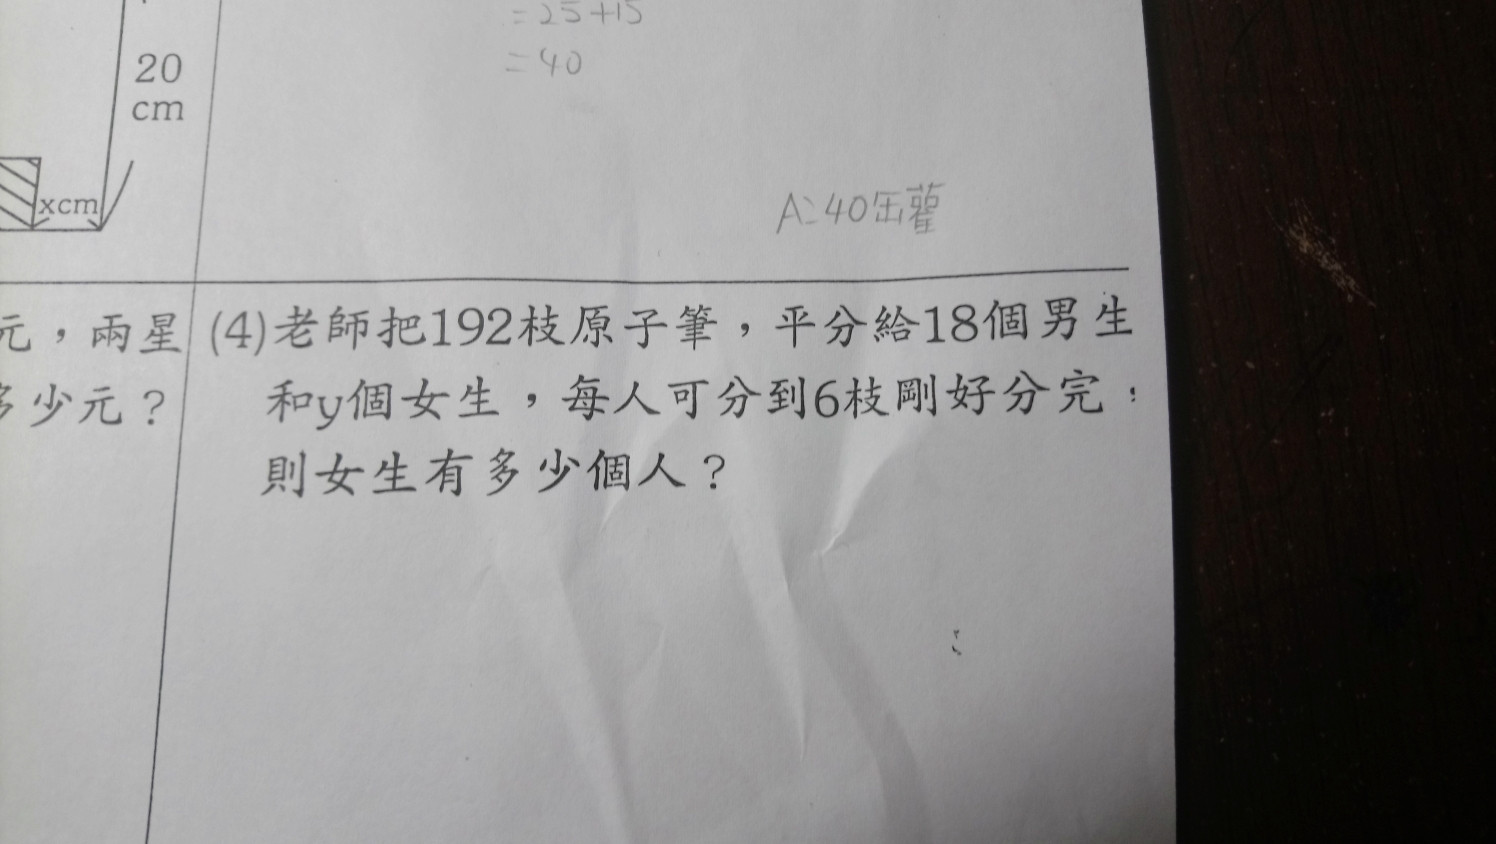 =25+15
=40
20
cm
xcm
A:40缶雚
元，兩星
少元？
(4)老師把192枝原子筆，平分給18個男生
和y個女生，每人可分到6枝剛好分完；
則女生有多少個人？